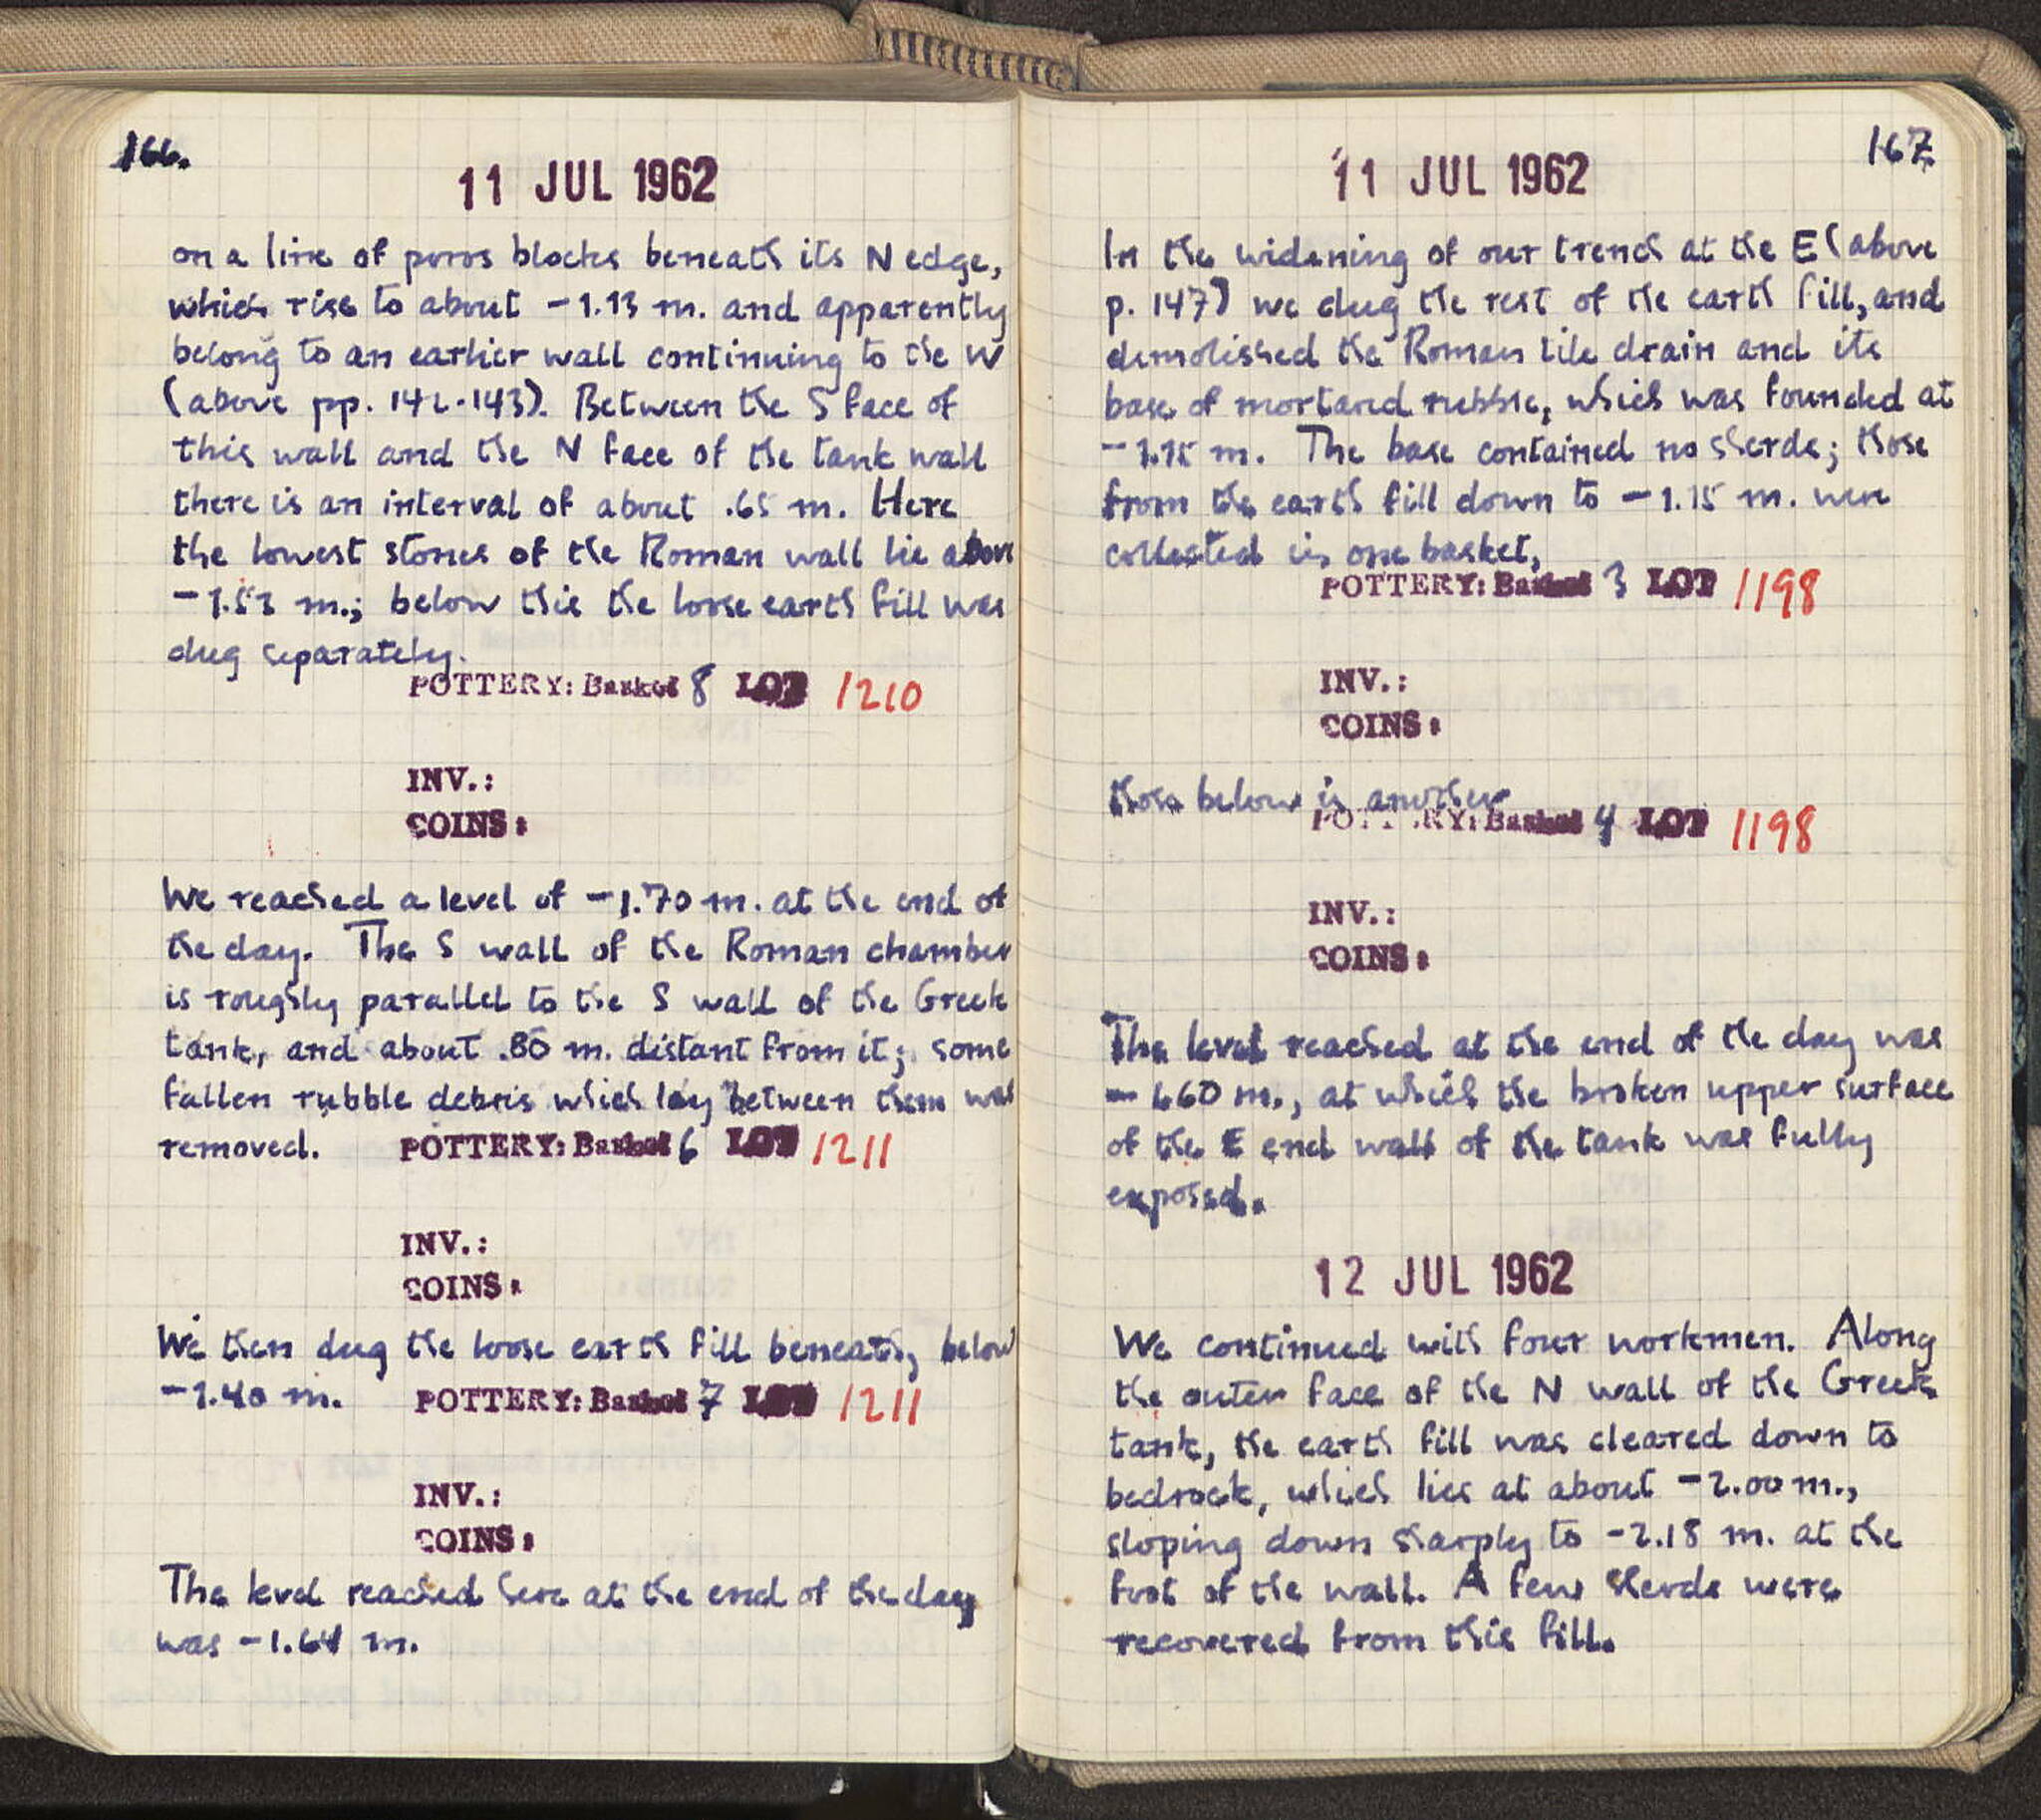 166.
11 JUL 1962
on a line of poros blocks beneath its N edge,
which rise to about -1.13 m. and apparently
belong to an earlier wall continuing to the W
(above pp. 142-143). Between the S face of
this wall and the N face of the tank wall
there is an interval of about .65 m. Here
the lowest stones of the Roman wall lie above
-1.53 m.; below this the loose earth fill was
dug separately.
POTTERY: Basket 8 LOT 1210
INV.:
COINS:
We reached a level of -1.70 m. at the end of
the day. The S wall of the Roman chamber
is roughly parallel to the S wall of the Greek
tank, and about .80 m. distant from it; some
fallen rubble debris which lay between them was
removed. POTTERY: Basket 6 LOT 1211
INV.:
COINS:
We then dug the loose earth fill beneath, below
-1.40 m. POTTERY: Basket 7 LOT 1211
INV.:
COINS:
The level reached here at the end of the day
was -1.64 m.
167
11 JUL 1962
In the widening of our trench at the E (above
p. 147) we dug the rest of the earth fill, and
demolished the Roman tile drain and its
base of mortared rubble, which was founded at
-1.15 m. The base contained no sherds; those
from the earth fill down to -1.15 m. were
collected in one basket,
POTTERY: Basket 3 LOT 1198
INV.:
COINS:
those below in another
POTTERY: Basket 4 LOT 1198
INV.:
COINS:
The level reached at the end of the day was
m., at which the broken upper surface
of the E end wall of the tank was fully
exposed.
12 JUL 1962
We continued with four workmen. Along
the outer face of the N wall of the Greek
tank, the earth fill was cleared down to
bedrock, which lies at about -2.00 m.,
sloping down sharply to -2.18 m. at the
foot of the wall. A few sherds were
recovered from this fill.